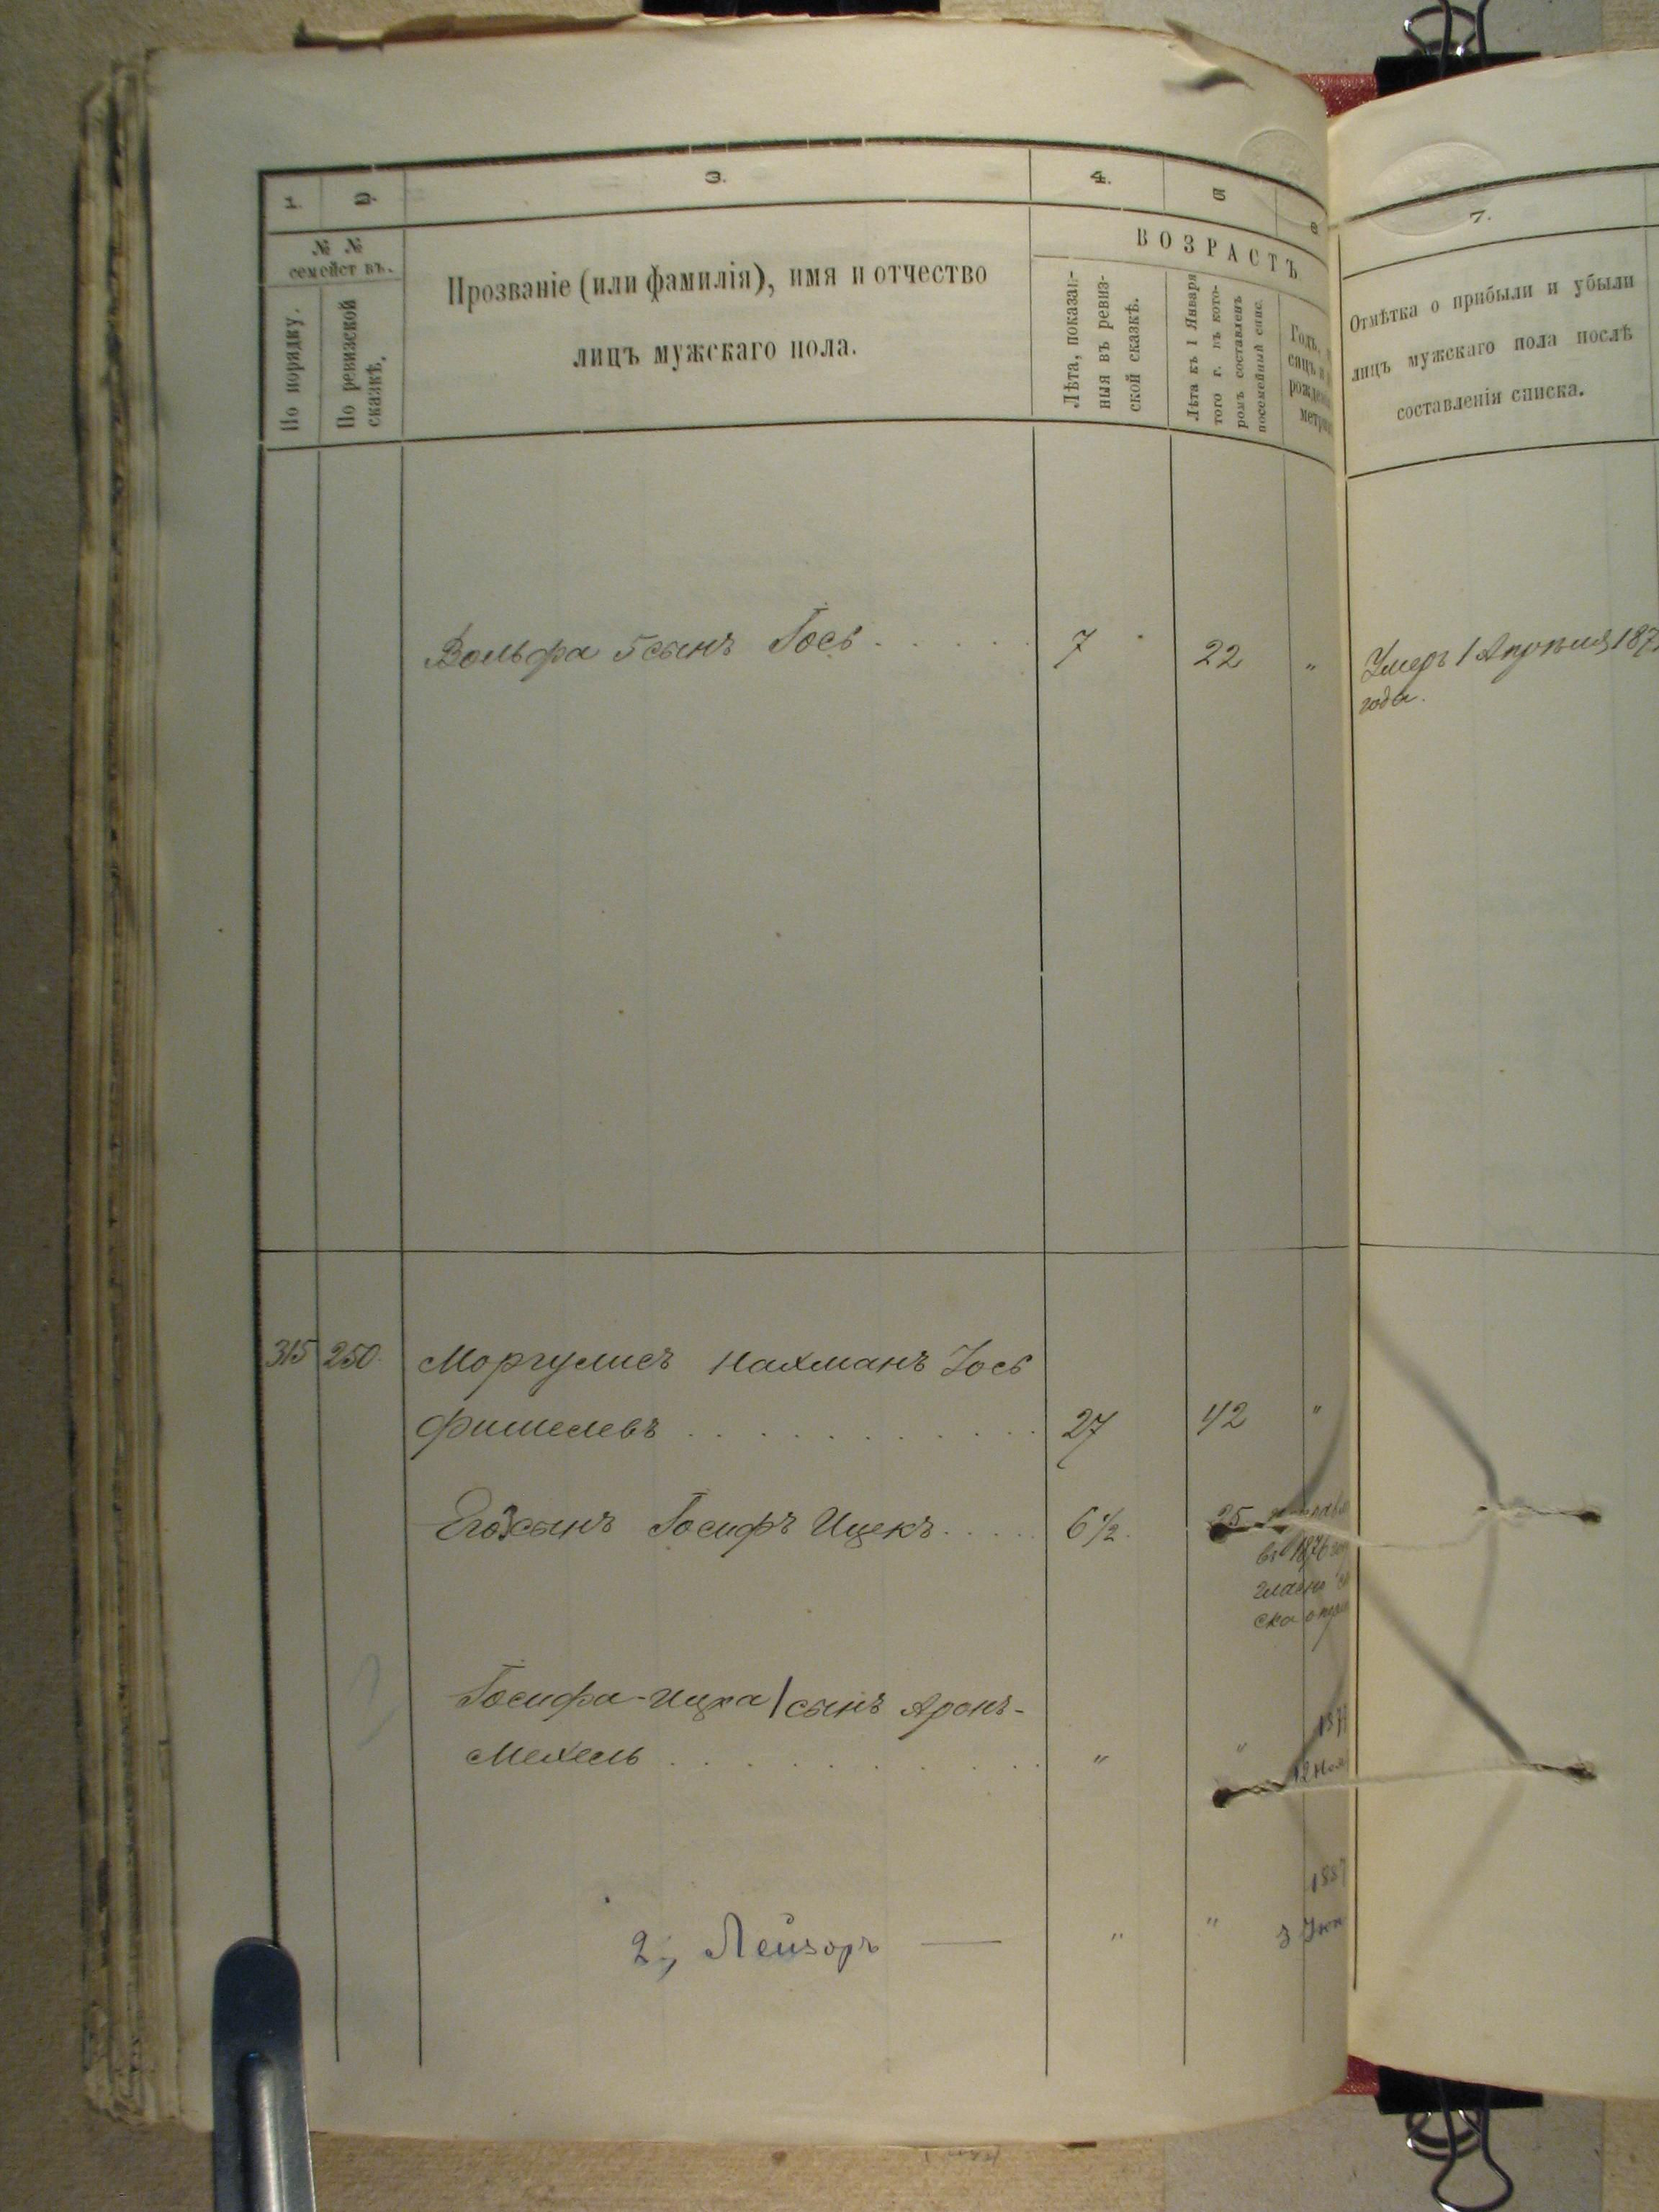 1. 2. 3. 4. 5 6
№ №
семействъ.
По порядку.
По ревизской
сказкѣ.
Прозваніе (или фамилія), имя и отчество
лицъ мужскаго пола.
ВОЗРАСТЪ
Лѣта, показан-
ныя въ ревиз-
ской сказкѣ.
Лѣта къ 1 Января
того г. въ кото-
ромъ составленъ
посемейный спис.
Годъ,
сяцъ и
рожден
метри
7.
Отмѣтка о прибыли и убыли
лицъ мужскаго пола послѣ
составленія списка.
Вольфа 5 сынъ Іось 7 22 "
Умеръ 1 Апрѣля 187
года.
315 250 Моргулисъ Нахманъ Іось
Фишелевъ 27 42 "
Его сынъ Іосифъ Ицекъ 6½ 25
въ 1876
гласно
ска о
Іосифа-Ицка 1 сынъ Аронъ-
Мехель " " 187
12 Ноя
2, Лейзоръ — " " 1887
3 Іюн